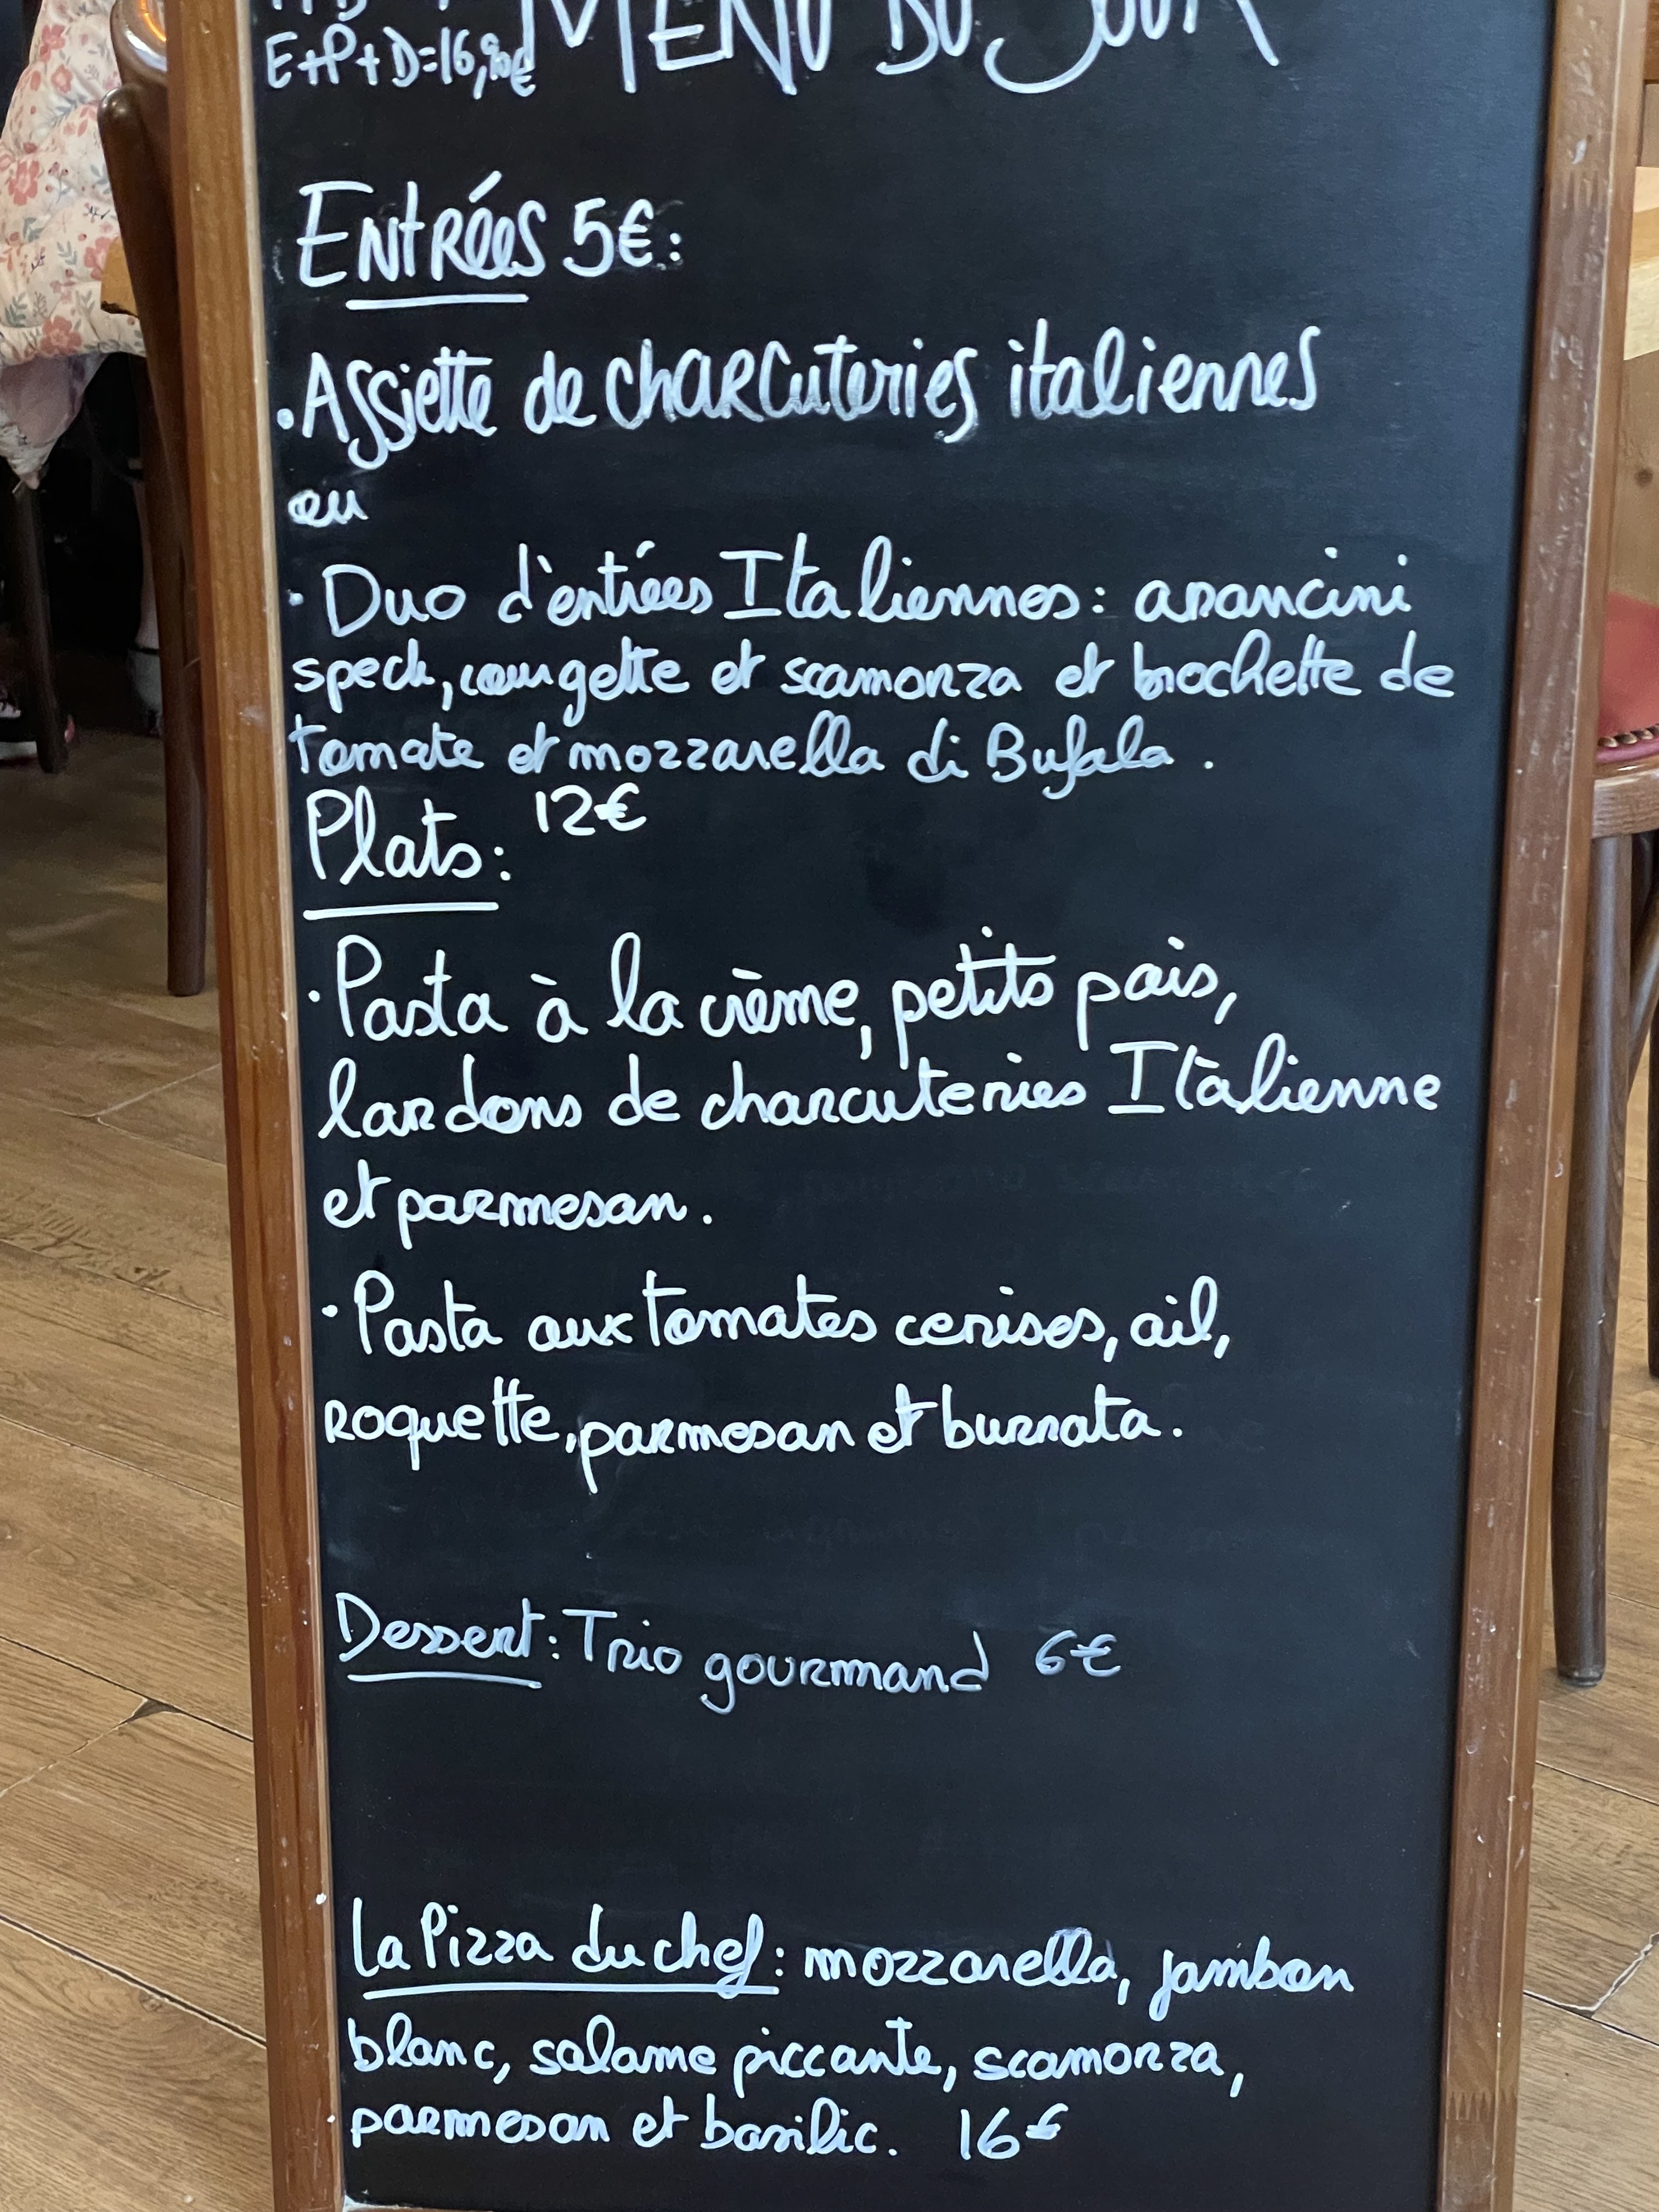 E+P+D=16,90€
MENU DU JOUR
Entrées 5€:
• Assiette de charcuteries italiennes
ou
• Duo d'entrées Italiennes : arancini
speck, courgette et scamorza et brochette de
tomate et mozzarella di Bufala .
Plats : 12€
• Pasta à la crème, petits pois,
lardons de charcuteries Italienne
et parmesan .
• Pasta aux tomates cerises, ail,
roquette, parmesan et burrata .
Dessert : Trio gourmand 6€
La Pizza du chef : mozzarella, jambon
blanc, salame piccante, scamorza,
parmesan et basilic. 16€